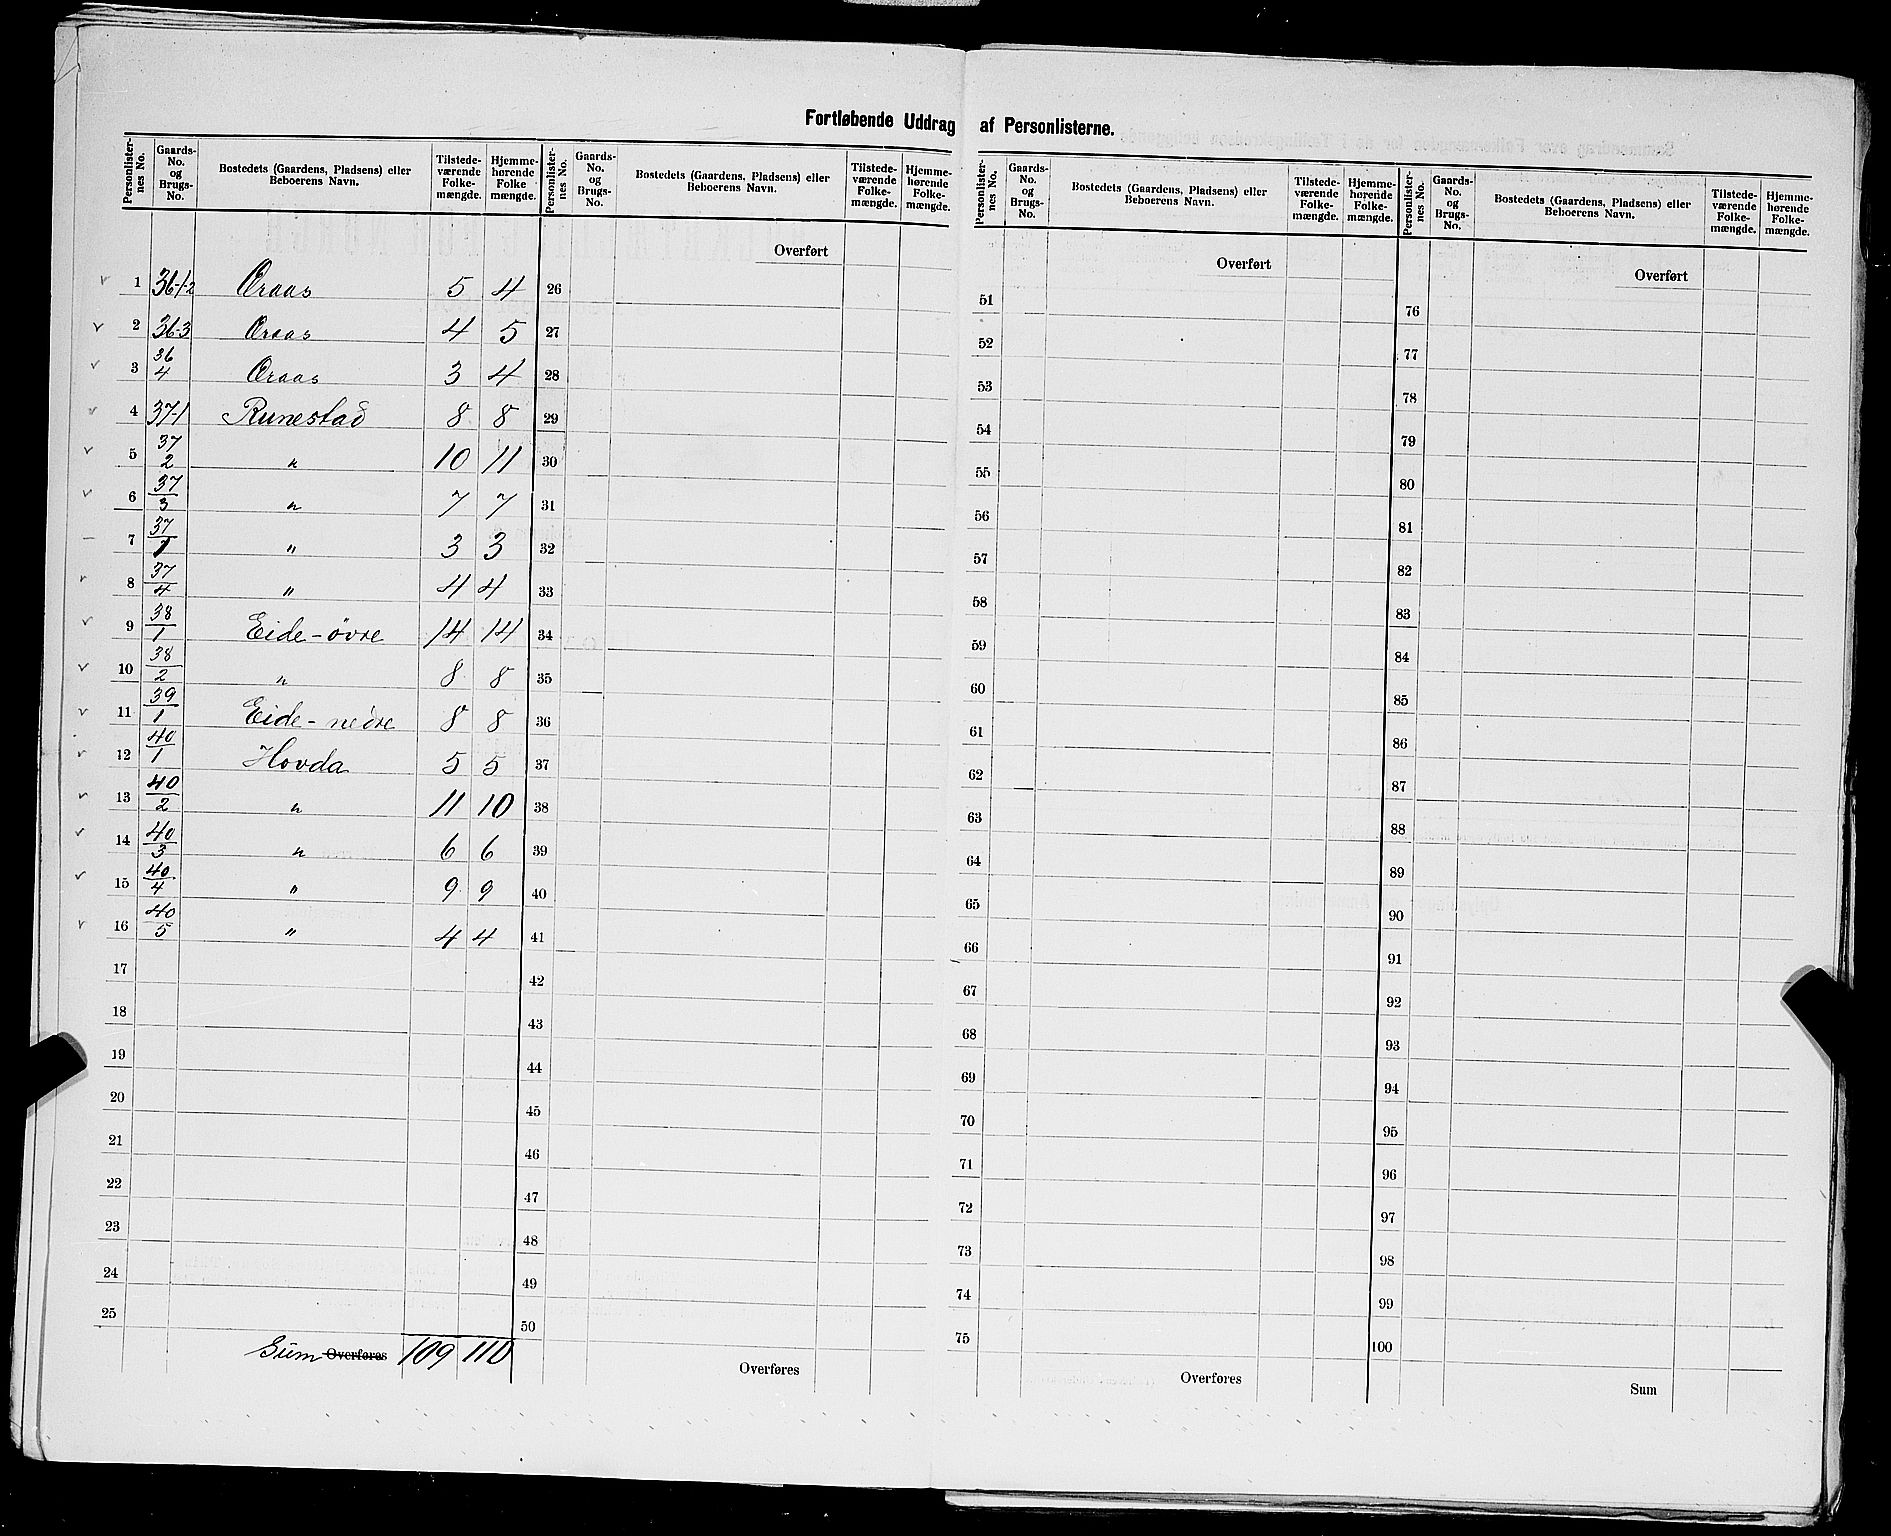 Fortløbende Uddrag af Personlisterne.
Personlister- nes No. | Gaards- No. og Brugs- No. | Bostedets (Gaardens, Pladsens) eller Beboerens Navn. | Tilstede- værende Folke- mængde. | Hjemme- hørende Folke mængde.
Personlister- nes No. | Gaards- No. og Brugs- No. | Bostedets (Gaardens, Pladsens) eller Beboerens Navn. | Tilstede- værende Folke- mængde. | Hjemme- hørende Folke- mængde.
Personlister- nes No. | Gaards- No. og Brugs- No. | Bostedets (Gaardens, Pladsens) eller Beboerens Navn. | Tilstede- værende Folke- mængde. | Hjemme- hørende Folke- mængde.
Personlister- nes No. | Gaards- No. og Brugs- No. | Bostedets (Gaardens, Pladsens) eller Beboerens Navn. | Tilstede- værende Folke- mængde. | Hjemme- hørende Folke- mængde.
1 36-1-2 Øraas 5 4
2 36-3 Øraas 4 5
3 36/4 Øraas 3 4
4 37-1 Runestad 8 8
5 37/2 " 10 11
6 37/3 " 7 7
7 37/1 " 3 3
8 37/4 " 4 4
9 38/1 Eide-övre 14 14
10 38/2 " 8 8
11 39/1 Eide-nedre 8 8
12 40/1 Hovda 5 5
13 40/2 " 11 10
14 40/3 " 6 6
15 40/4 " 9 9
16 40/5 " 4 4
17
18
19
20
21
22
23
24
25
Sum Overføres 109 110
Overført
26
27
28
29
30
31
32
33
34
35
36
37
38
39
40
41
42
43
44
45
46
47
48
49
50
Overføres
Overført
51
52
53
54
55
56
57
58
59
60
61
62
63
64
65
66
67
68
69
70
71
72
73
74
75
Overføres
Overført
76
77
78
79
80
81
82
83
84
85
86
87
88
89
90
91
92
93
94
95
96
97
98
99
100
Sum